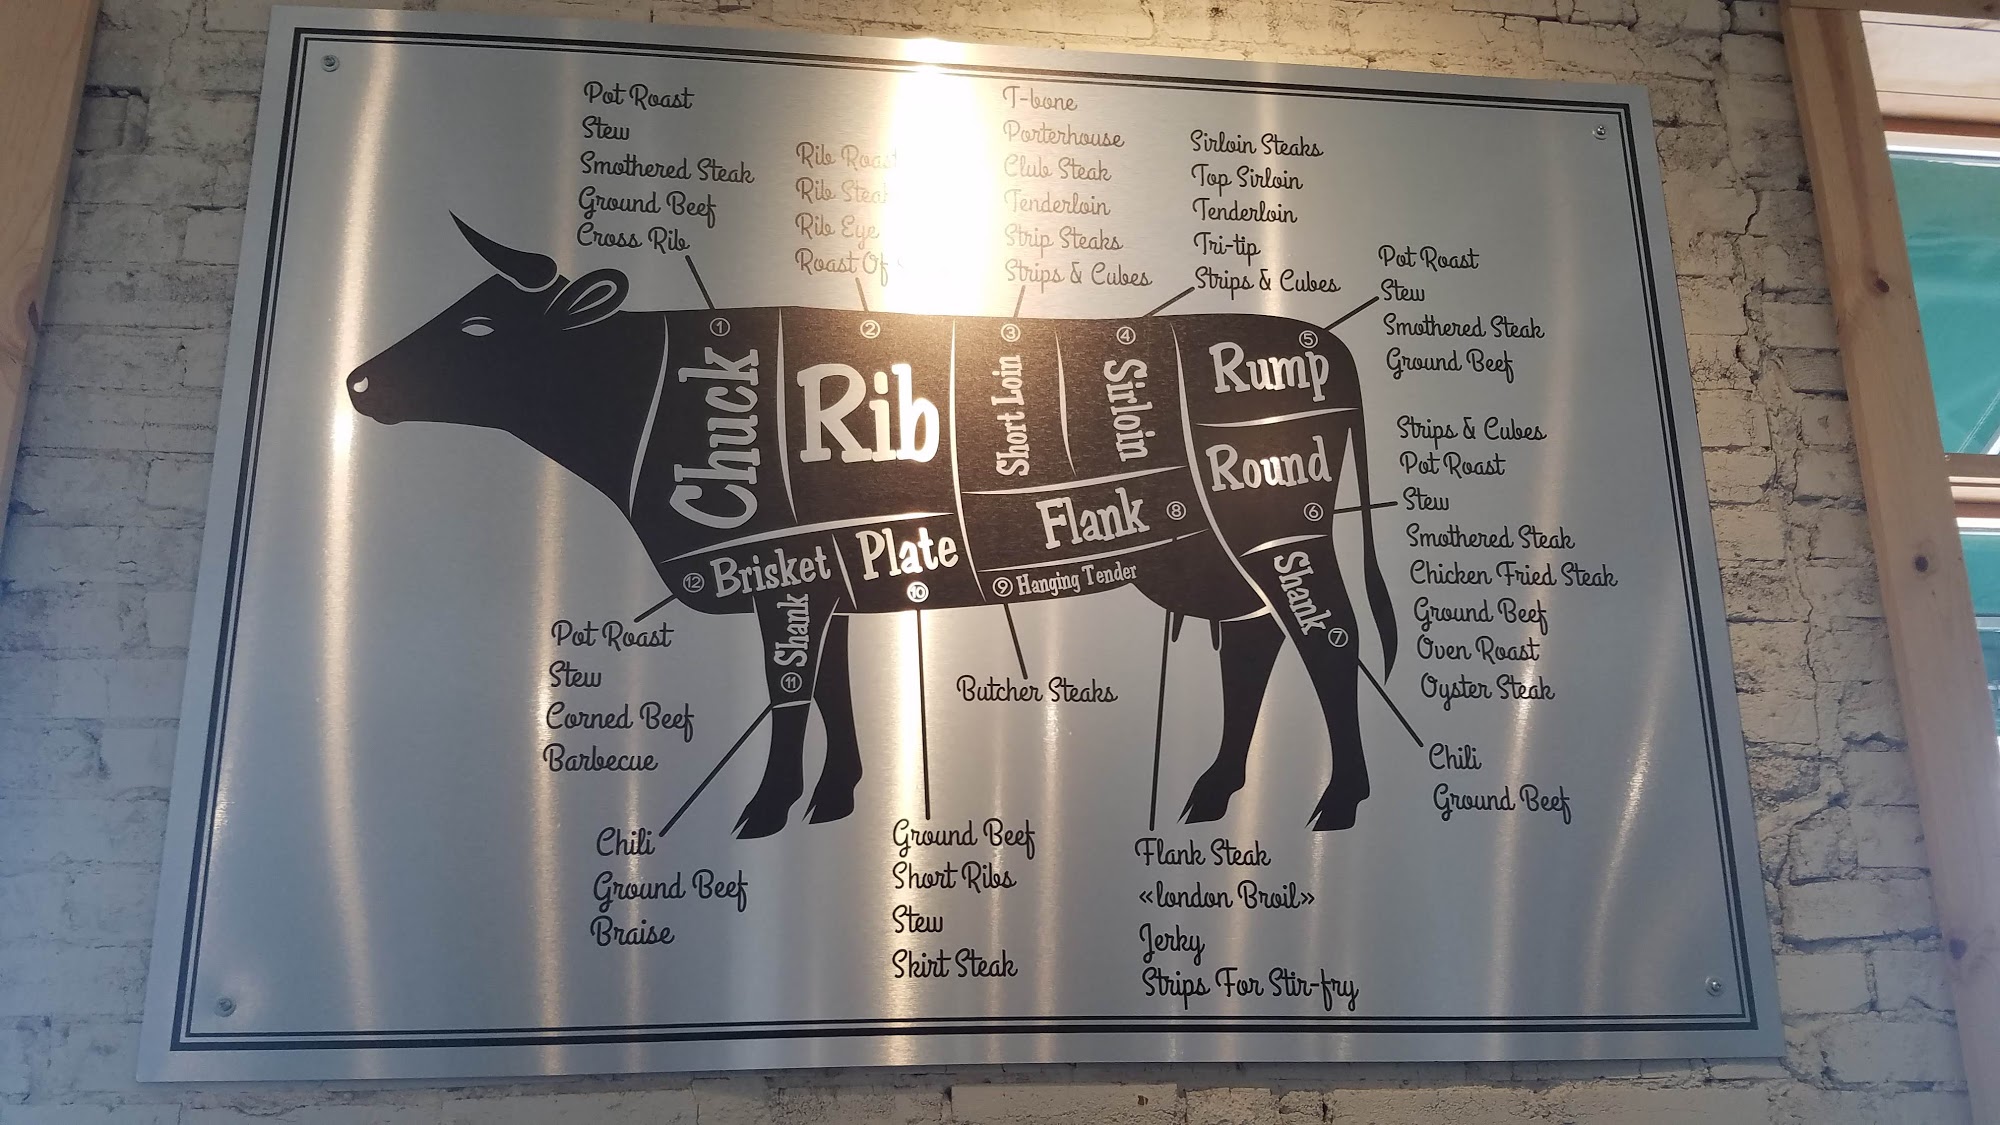 Pot Roast
Stew
Smothered Steak
Ground Beef
Cross Rib
Rib Roast
Rib Steak
Rib Eye
Roast Of
T-bone
Porterhouse
Club Steak
Tenderloin
Strip Steaks
Strips & Cubes
Sirloin Steaks
Top Sirloin
Tenderloin
Tri-tip
Strips & Cubes
Pot Roast
Stew
Smothered Steak
Ground Beef
① Chuck
② Rib
③ Short Loin
④ Sirloin
⑤ Rump
Round ⑥
Strips & Cubes
Pot Roast
Stew
Smothered Steak
Chicken Fried Steak
Ground Beef
Oven Roast
Oyster Steak
Flank ⑧
⑨ Hanging Tender
Plate
⑩
⑫ Brisket
Shank
⑪
Shank ⑦
Pot Roast
Stew
Corned Beef
Barbecue
Butcher Steaks
Chili
Ground Beef
Chili
Ground Beef
Braise
Ground Beef
Short Ribs
Stew
Skirt Steak
Flank Steak
«london Broil»
Jerky
Strips For Stir-fry